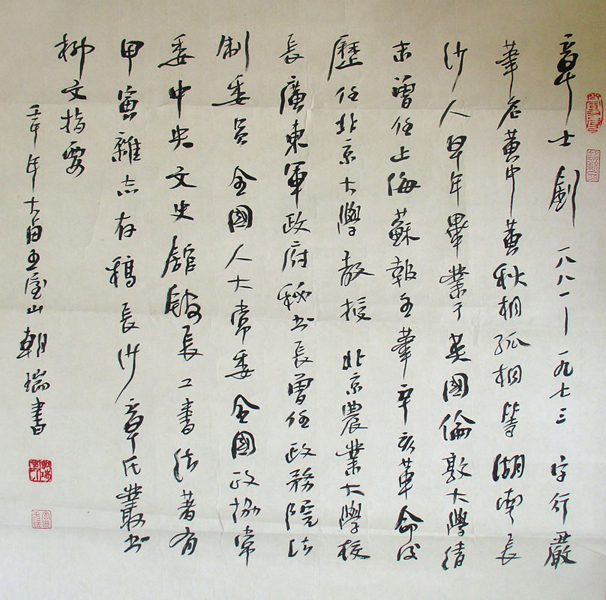 章士釗 一八八一—一九七三 字行嚴
筆名黃中黃秋桐孤桐等湖南長
沙人早年畢業于英國倫敦大學清
末曾任上海蘇報主筆辛亥革命后
歷任北京大學教授北京農業大學校
長廣東軍政府秘书長曾任政務院法
制委員全國人大常委全國政協常
委中央文史館館長工書法著有
甲寅雜志存稿長沙章氏叢书
柳文指要
年 王屋山朝瑞書